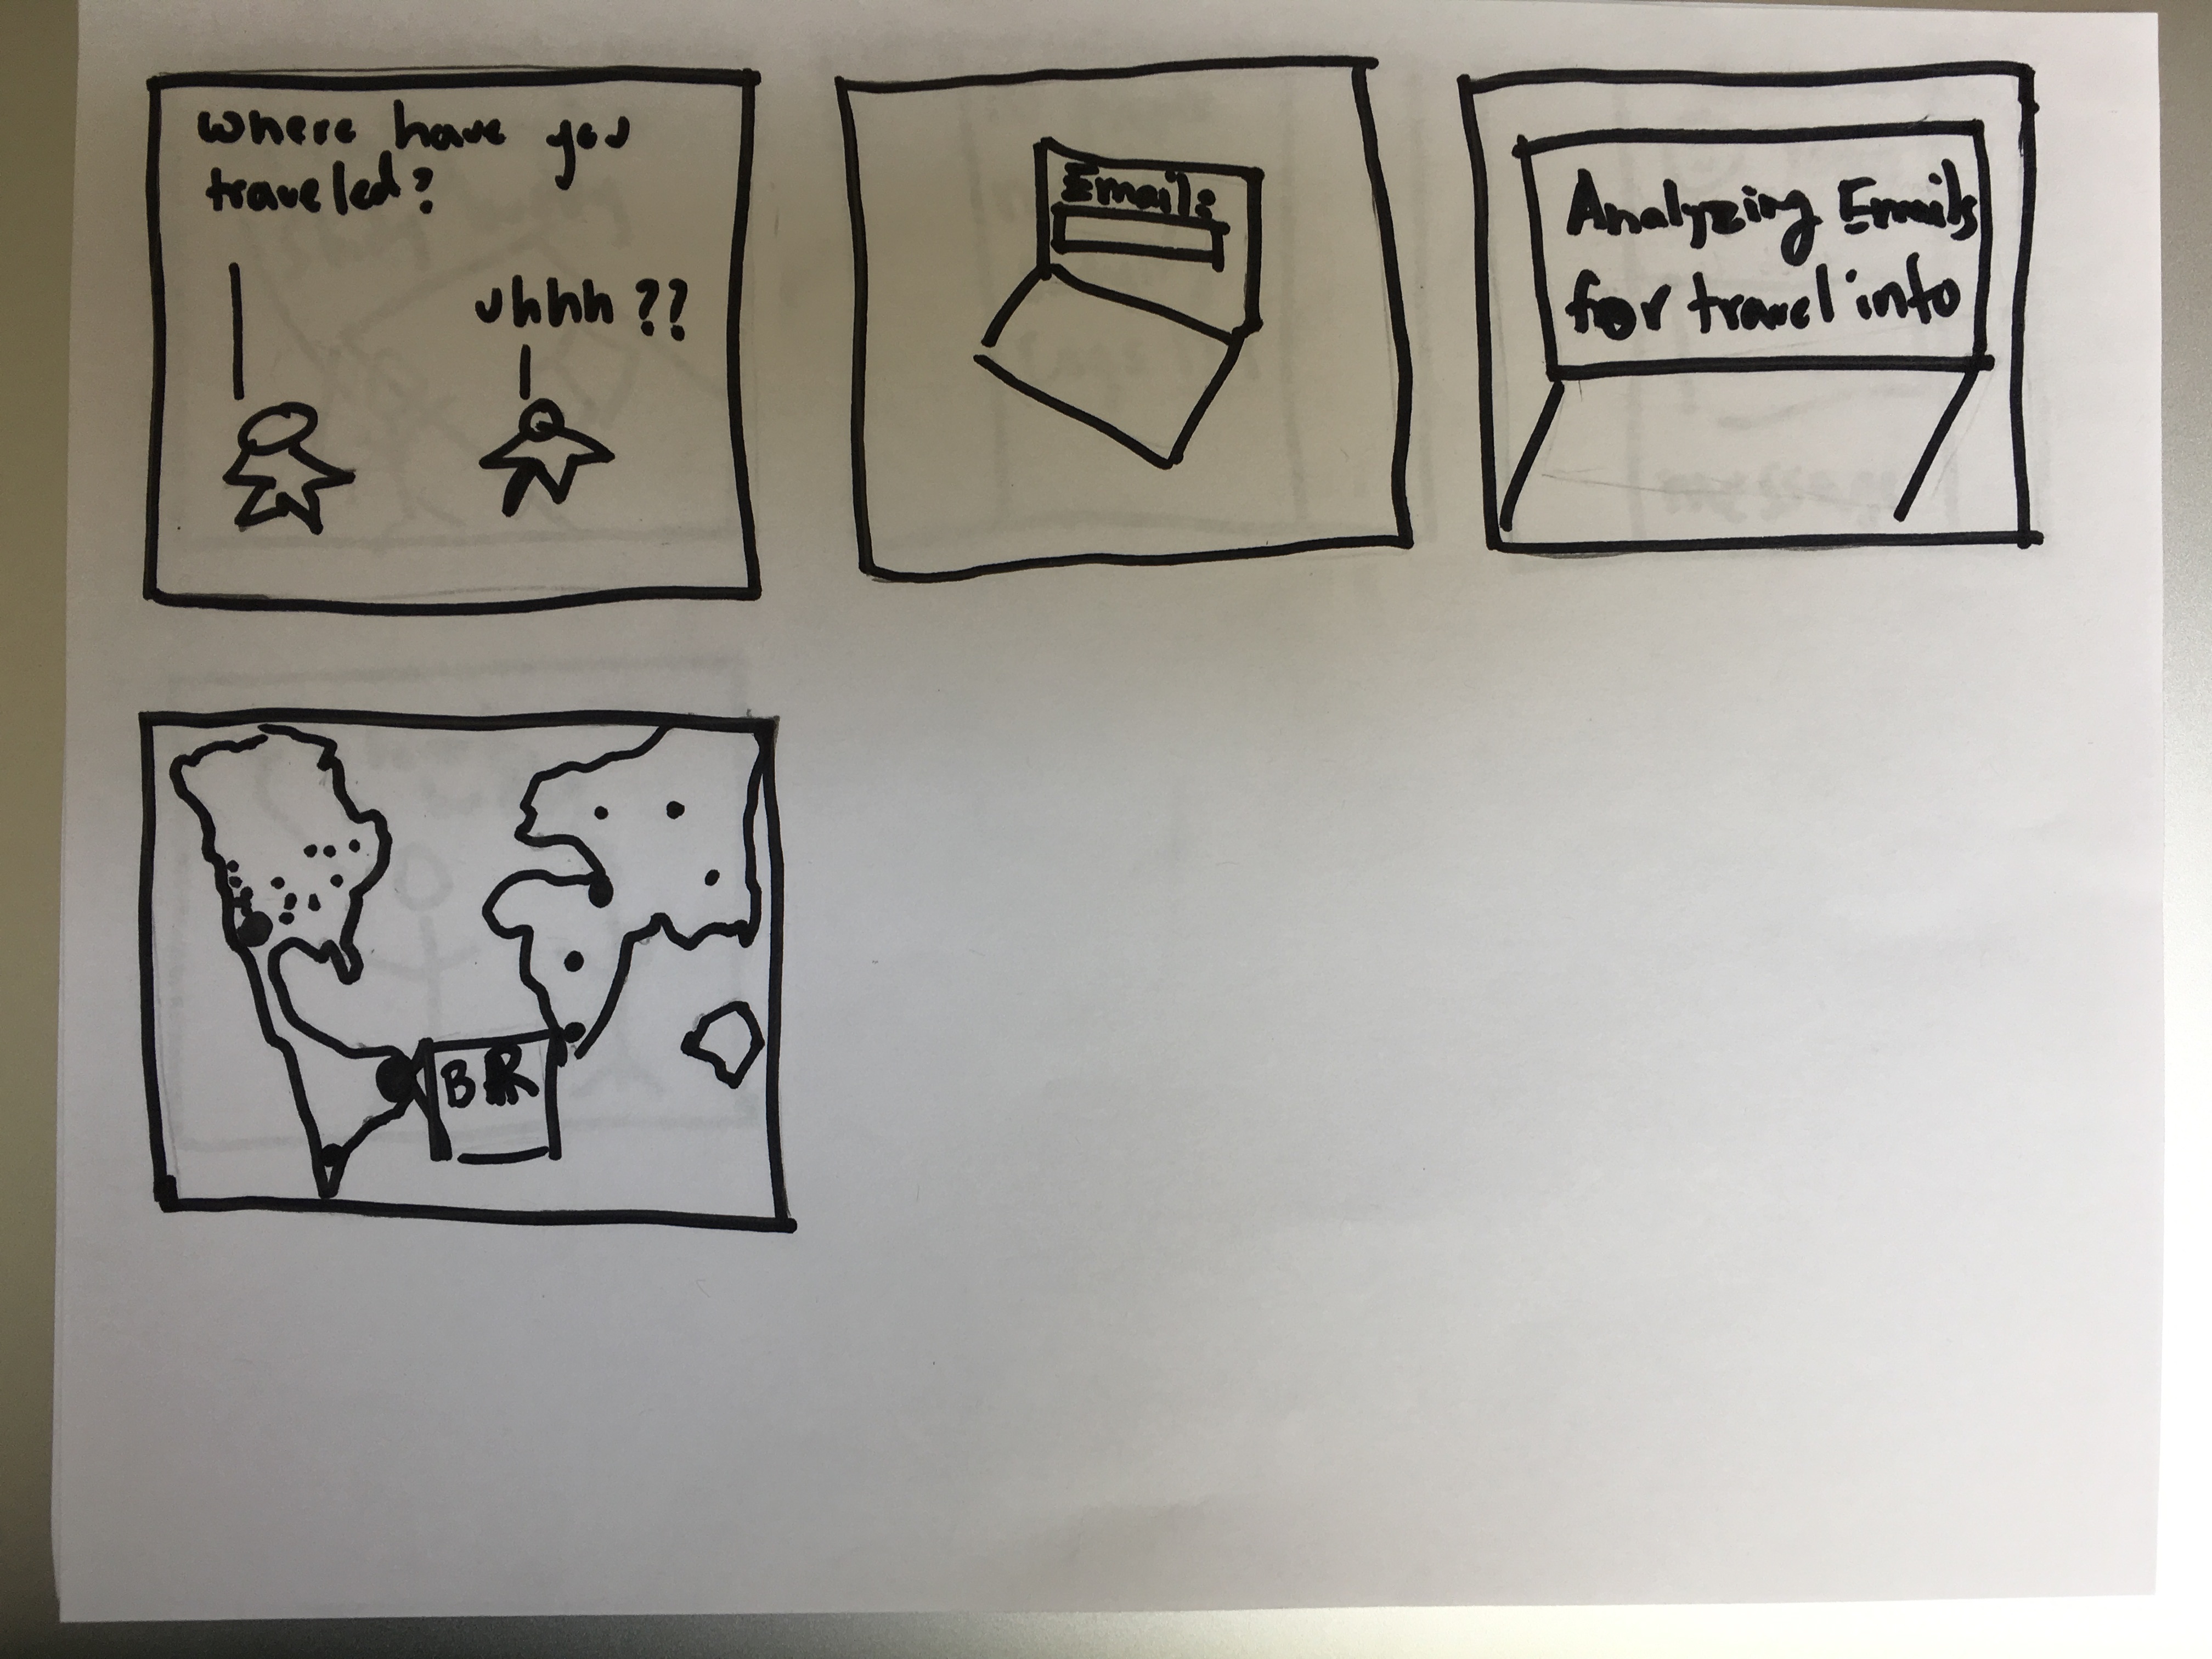 where have you
traveled?
uhhh ??
Email:
Analyzing Emails
for travel info
BR